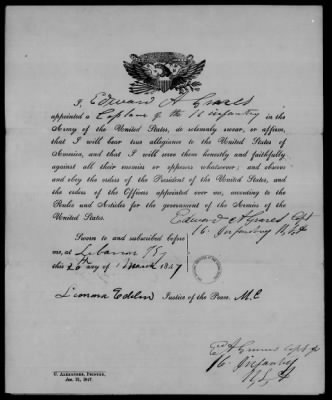 I, Edward A Graves
appointed a Captain of the 16 infantry in the
Army of the United States, do solemnly swear, or affirm,
that I will bear true allegiance to the United States of
America, and that I will serve them honestly and faithfully
against all their enemies or opposers whatsoever; and observe
and obey the orders of the President of the United States, and
the orders of the Officers appointed over me, according to the
Rules and Articles for the government of the Armies of the
United States.
Edward A Graves Capt
16 Infantry U.S.A
Sworn to and subscribed before
me, at Lebanon Ky
this 26th day of March 1847
Justice of the Peace. M.C
Capt
16 Infantry
U.S.A
C. Alexander, Printer,
Jan. 21, 1847.